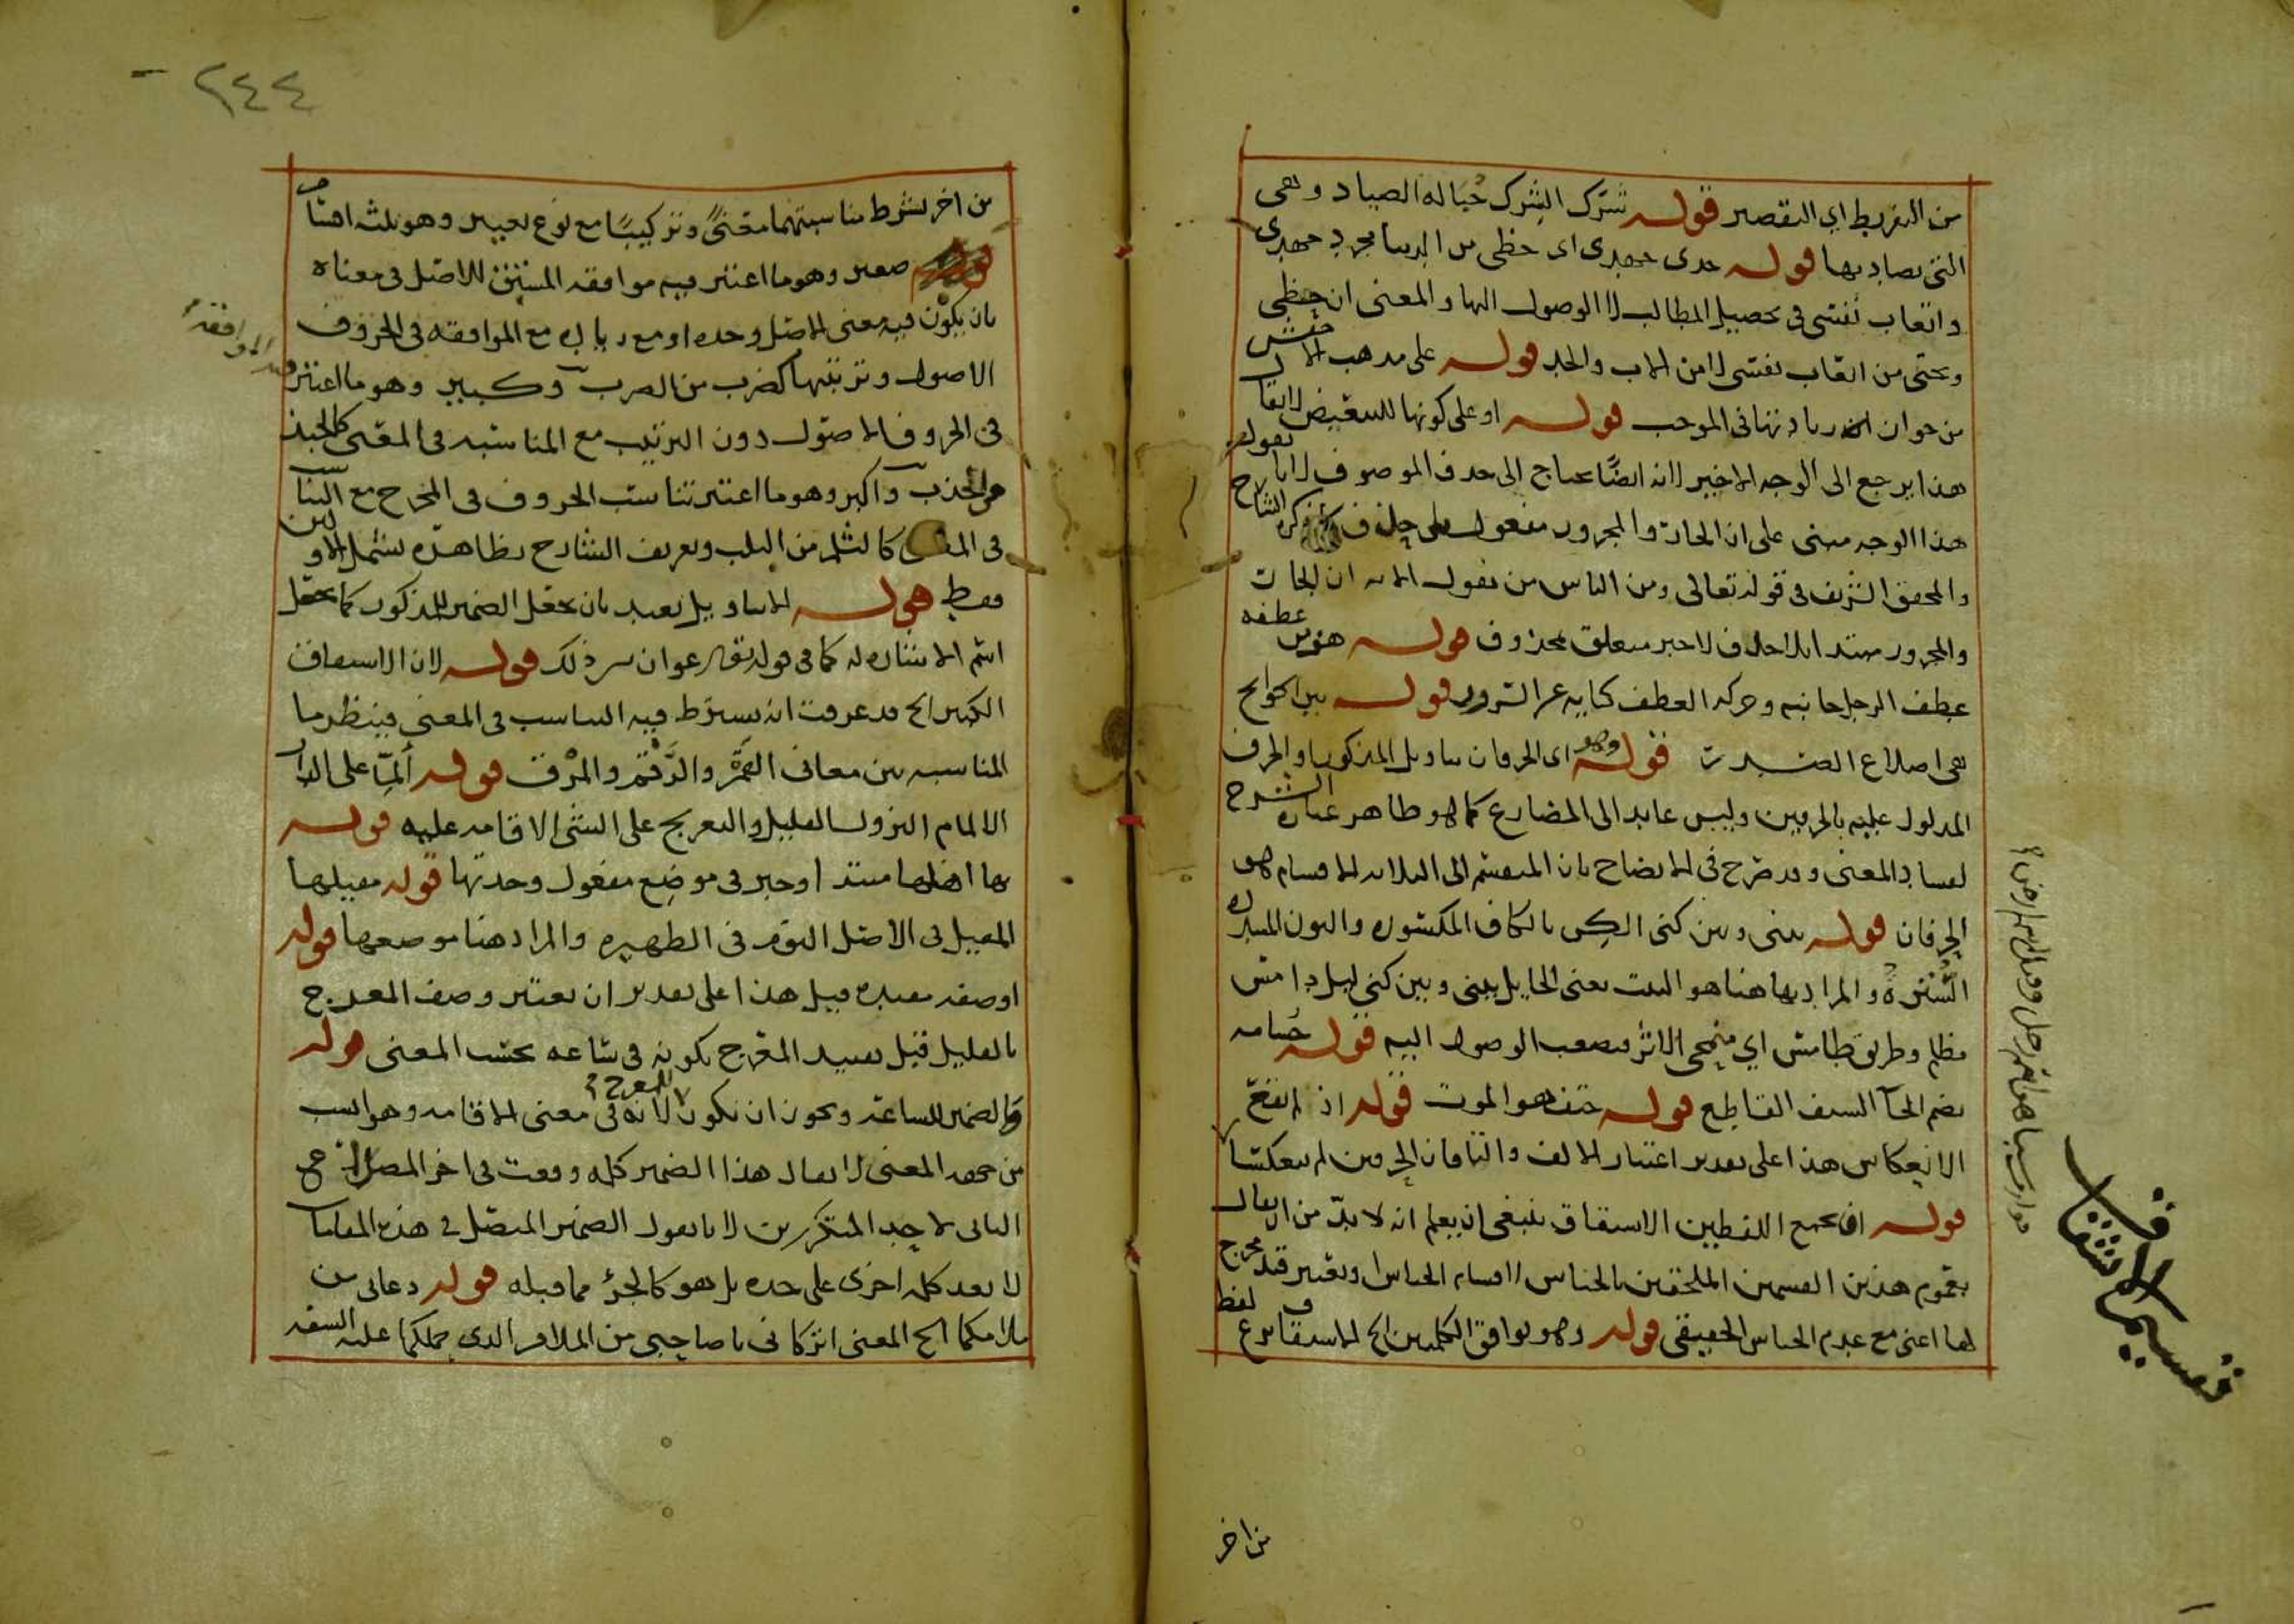 من التفريط اي التقصير قوله شرك الشرك حباله الصياد وهي
التي يصاد بها قوله جدى جهدى اى حظى من الدنيا مجرد جهدى
واتعاب نفسى فى تحصيل المطالب لا الوصول اليها والمعنى ان حظى
وبختى من اتعاب نفسى لا من الاب والجد قوله على مذهب الاخفش
من جواز زيادتها فى الموجب قوله او على كونها للتبعيض لا يقال
هذا يرجع الى الوجه الاخير لانه ايضًا يحتاج الى حذف الموصوف لانا نقول
هذا الوجه مبنى على ان الجار والمجرور مفعول على ذكره الشارح
والمحقق الشريف فى قوله تعالى ومن الناس من يقول الاية ان الجار
والمجرور مبتدا بلا حذف لا خبر متعلق محذوف قوله هز من عطفه
عطف الرجل جانبه وحركة العطف كناية عن السرور قوله بين الجوانح
هى اضلاع الصدر قوله وهو اى الحرفان بتاويل المذكور او الحرف
المدلول عليه بالحرفين وليس عايد الى المضارع كما هو ظاهر عبارة الشرح
لفساد المعنى وقد صرح فى الايضاح بان المنقسم الى الثلاثة الاقسام هو
الحرفان قوله بينى وبين كنى الكن بالكاف المكسورة والنون المشددة
السترة والمراد بها هنا هو البيت يعنى الحايل بينى وبين كنى ليل دامس
مظلم وطريق طامس اي منمحى الاثر فصعب الوصول اليه قوله حسامه
بضم الحآ السيف القاطع قوله حتف هو الموت قوله اذ لم يقع
الانعكاس هذا على تقدير اعتبار الالف والتا فان الحرفين لم ينعكسا
قوله ان يجمع اللفظين الاشتقاق ينبغى ان يعلم انه لا بد من ان يقال
بعموم هذين القسمين الملحقين بالجناس لاقسام الجناس او يعتبر قيد مخرج
لها اعنى مع عدم الجناس الحقيقى قوله وهو توافق الكلمتين الخ الاشتقاق نزع لفظ
من اخر
تقسيم الاشتقاق
٢٤٤
من اخر بشرط مناسبتهما معنىً وتركيبًا مع نوع تغيير وهو ثلثة اقسام
صغير وهو ما اعتبر فيه موافقة المشتق للاصل فى معناه
بان يكون فيه معنى الاصل وحده او مع زيادة مع الموافقة فى الحروف
الاصول وترتيبها كضرب من الضرب وكبير وهو ما اعتبر فيه الموافقة
فى الحروف الاصول دون الترتيب مع المناسبة فى المعنى كالجبذ
من الجذب واكبر وهو ما اعتبر تناسب الحروف فى المخرج مع التناسب
فى المعنى كالثلم من الثلب وتعريف الشارح بظاهره يشمل الاولين
فقط قوله الا بتاويل بعيد بان يجعل الضمير للمذكور كما يجعل
اسم الاشارة له كما فى قوله تعالى عوان بين ذلك قوله لان الاشتقاق
الكبير الخ قد عرفت انه يشترط فيه التناسب فى المعنى فينظر ما
المناسبة بين معانى القمر والرقم والمرق قوله ألمّا على الدار
الالمام النزول القليل والتعريج على الشئ الاقامة عليه قوله
بها اهلها مبتدا وخبر فى موضع مفعول وجدتها قوله مقيلها
المقيل فى الاصل النوم فى الظهيرة والمراد هنا موضعها قوله
او صفة مقيدة قيل هذا على تقدير ان يعتبر وصف المعرج
بالقليل قبل تقييد المعرج بكونه فى ساعة بحسب المعنى قوله
والضمير للساعة ويجوز ان تكون للمعرج لانه فى معنى الاقامة وهو انسب
من جهة المعنى لا يقال هذا الضمير كلمة وقعت فى اخر المصراع
الثانى لا احد المتكررين لانا نقول الضمير المتصل فى هذه المقامات
لا يعد كلمة اخرى على حدة بل هو كالجزؤ مما قبله قوله دعانى من
ملامكما الخ المعنى اتركانى يا صاحبى من الملام الذى حملكما عليه السفه